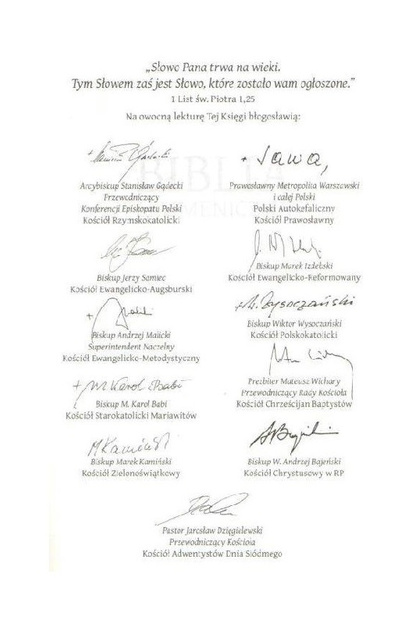 „Słowo Pana trwa na wieki.
Tym Słowem zaś jest Słowo, które zostało wam ogłoszone.”
1 List św. Piotra 1,25
Na owocną lekturę Tej Księgi błogosławią:
BIBLIA
Arcybiskup Stanisław Gądecki
Przewodniczący
Konferencji Episkopatu Polski
Kościół Rzymskokatolicki
+ Sawa,
Prawosławny Metropolita Warszawski
i całej Polski
Polski Autokefaliczny
Kościół Prawosławny
Biskup Jerzy Samiec
Kościół Ewangelicko-Augsburski
Biskup Marek Izdebski
Kościół Ewangelicko-Reformowany
Biskup Andrzej Malicki
Superintendent Naczelny
Kościół Ewangelicko-Metodystyczny
+ W. Wysoczański
Biskup Wiktor Wysoczański
Kościół Polskokatolicki
+ M. Karol Babi
Biskup M. Karol Babi
Kościół Starokatolicki Mariawitów
Prezbiter Mateusz Wichary
Przewodniczący Rady Kościoła
Kościół Chrześcijan Baptystów
M Kamiński
Biskup Marek Kamiński
Kościół Zielonoświątkowy
Biskup W. Andrzej Bajeński
Kościół Chrystusowy w RP
Pastor Jarosław Dzięgielewski
Przewodniczący Kościoła
Kościół Adwentystów Dnia Siódmego